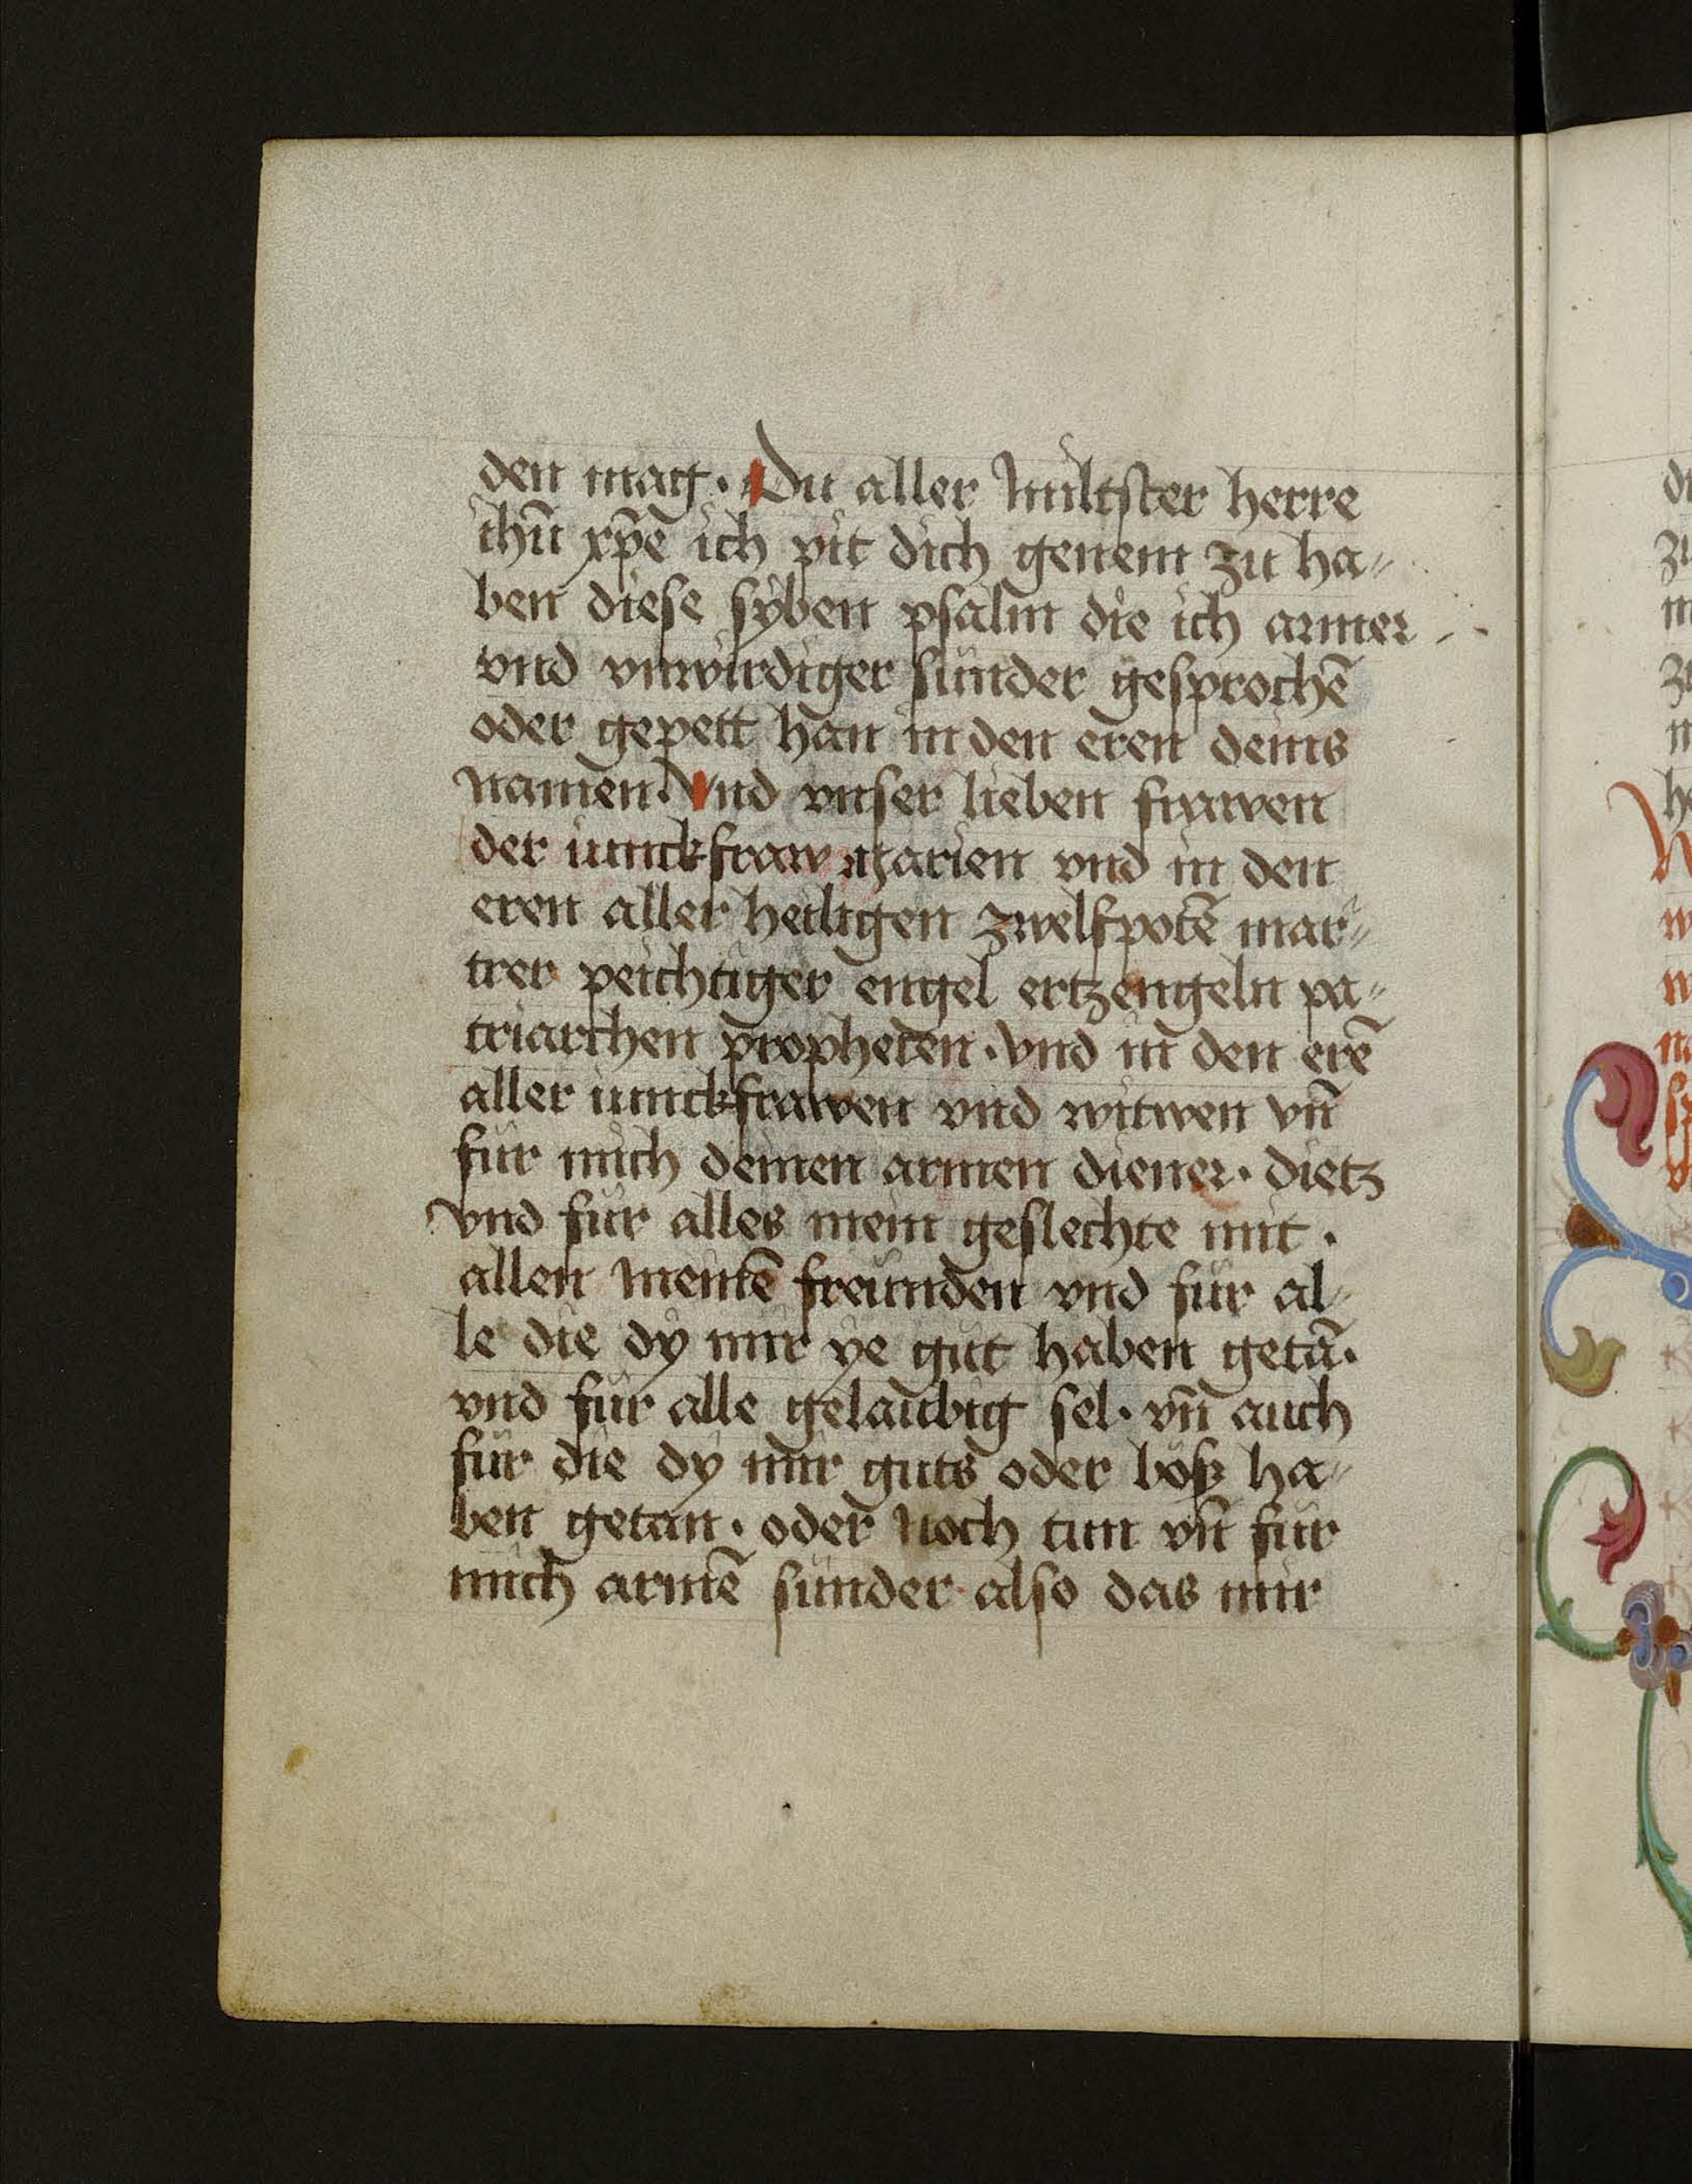 den mag. Du aller miltster herre
ihū xp̄e ich pit dich genem zu ha⸗
ben diese syben psalm die ich armer
vnd vnwirdiger sünder gesprochē
oder gepett han in den eren deins
namen. Vnd vnser lieben frawen
der iunckfraw marien vnd in den
eren aller heiligen zwelfpotē mar⸗
trer peichtiger engel ertzengeln pa⸗
triarchen propheten. vnd in den erē
aller iunckfrawen vnd witwen vn̄
für mich deinen armen diener. dietz
vnd für alles mein geslechte mit.
allen meinē freünden vnd für al⸗
le die dy mir ye gut haben getā.
vnd für alle gelaubig sel. vn̄ auch
für die dy mir guts oder böß ha⸗
ben getan. oder noch tun vn̄ für
mich armē sünder also das mir